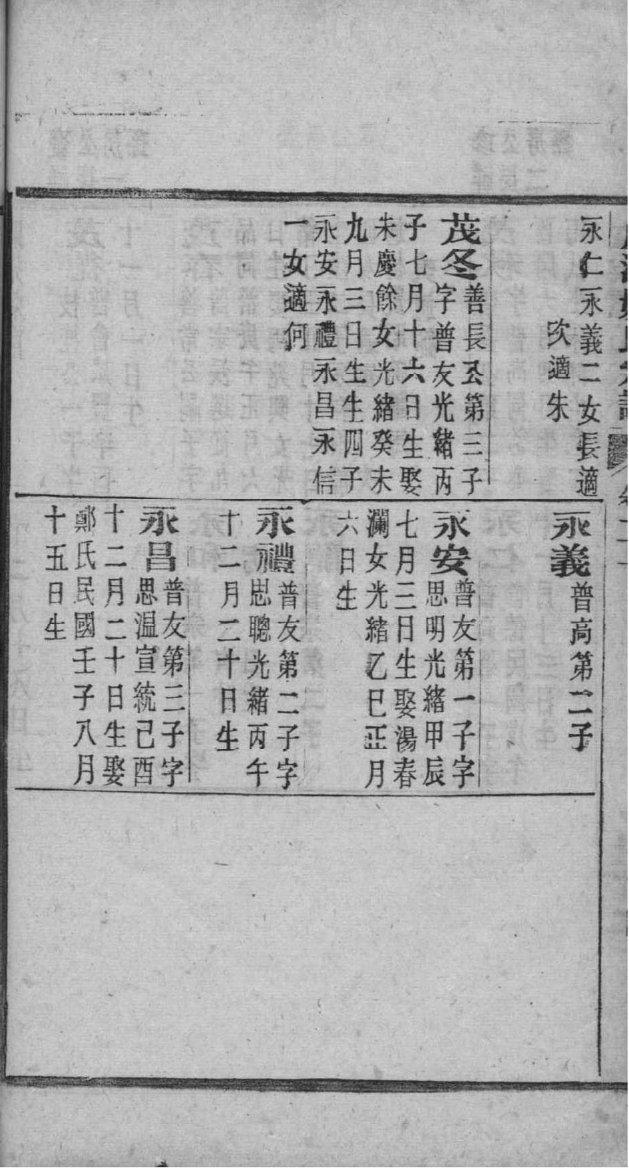 永仁永義二女長適
次適朱
茂冬善長公第三子
字普友光緒丙
子七月十六日生娶
朱慶餘女光緒癸未
九月三日生生四子
永安永禮永昌永信
一女適何
永義普高第二子
永安普友第一子字
思明光緒甲辰
七月三日生娶湯春
瀾女光緒乙巳正月
六日生
永禮普友第二子字
思聰光緒丙午
十二月二十日生
永昌普友第三子字
思温宣統己酉
十二月二十日生娶
鄭氏民國壬子八月
十五日生